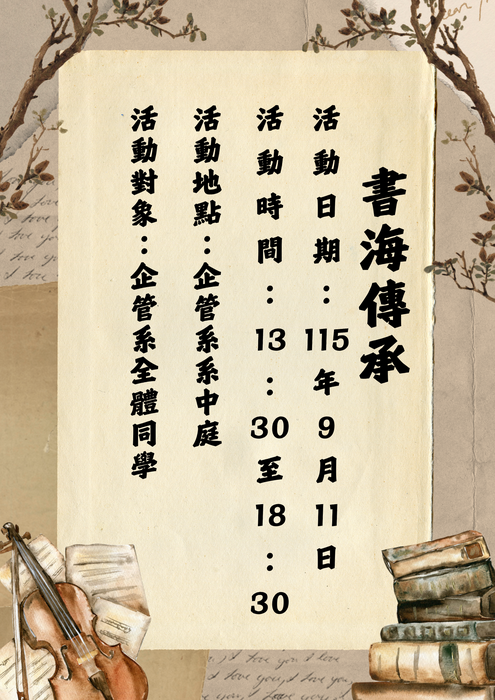 書海傳承
活動日期：115年9月11日
活動時間：13：30至18：30
活動地點：企管系系中庭
活動對象：企管系全體同學